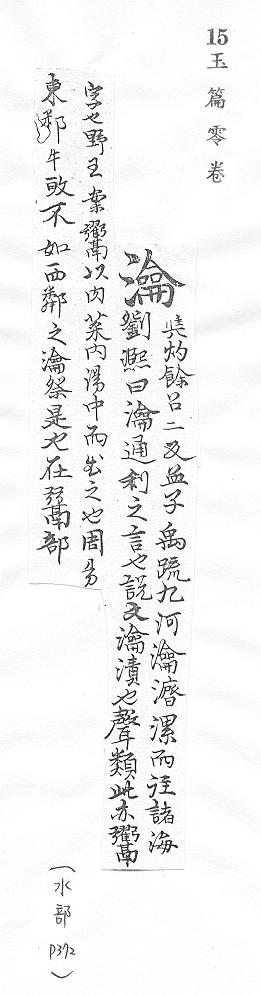 15玉篇零卷
瀹
灼餘召二反孟子禹䟽九河瀹濟漯而注諸海
劉熙曰瀹通利之言也說文瀹漬也聲類此亦鬻
字也野王案鬻以肉菜內湯中而出之也周易
東鄰牛敢不如西鄰之瀹祭是也在鬻部
(水部 P372)